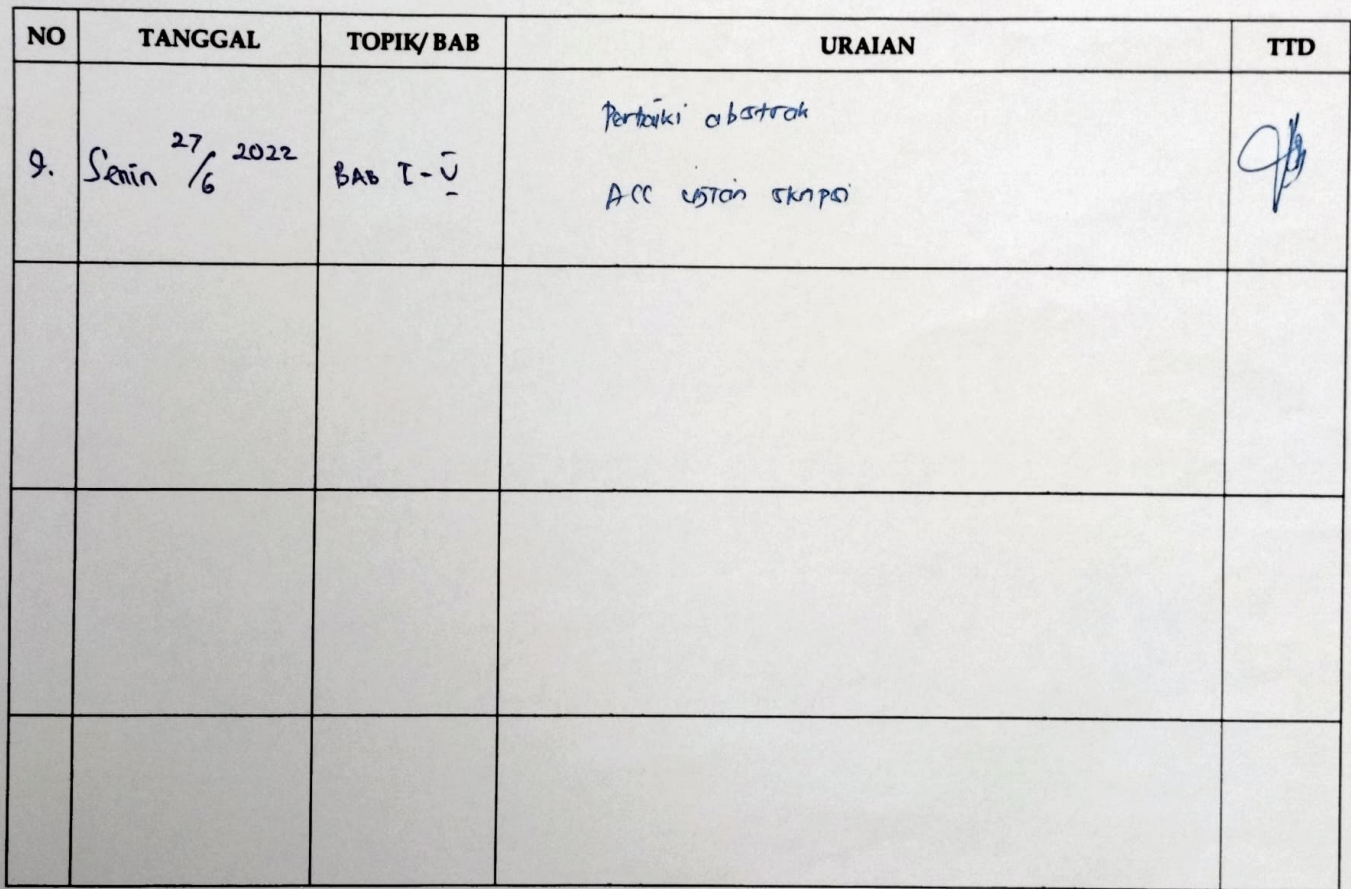 NO TANGGAL TOPIK/ BAB URAIAN TTD
9. Senin 27/6 2022 BAB I - V
Perbaiki abstrak
ACC ujian skripsi